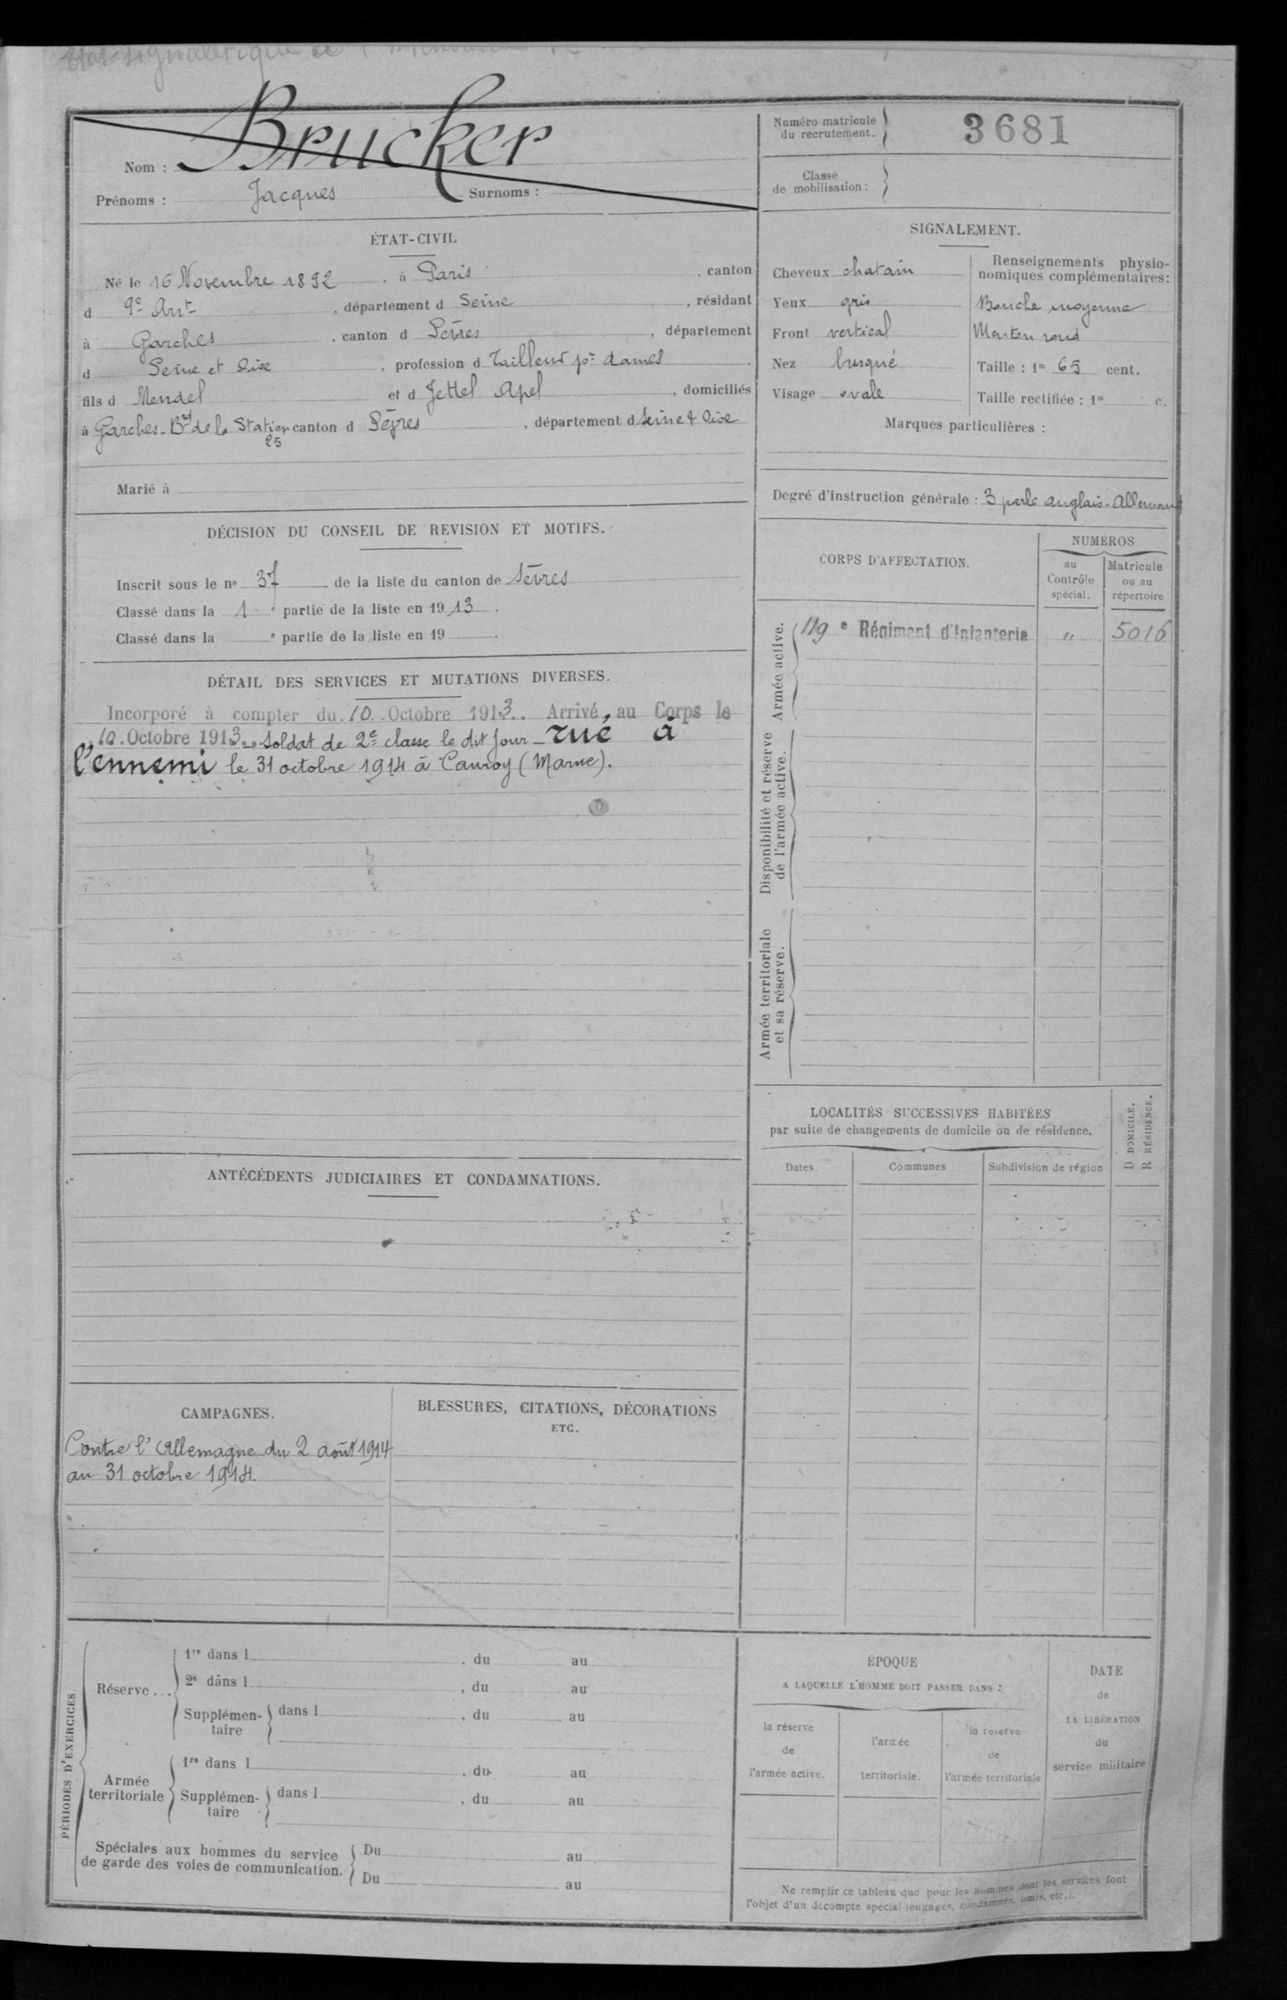 Numéro matricule
du recrutement.
3681
Classe
de mobilisation :
Nom : Brucker
Prénoms : Jacques Surnoms :
ÉTAT-CIVIL
Né le 16 Novembre 1892 . à Paris , canton
d 9e Arrt , département d Seine , résidant
à Garches , canton d Sèvres , département
d Seine et Oise , profession d Tailleur pr dames .
fils d Mendel et d Jettel Apel , domiciliés
à Garches - Brd de la Station canton d Sèvres , département d Seine & Oise
25
Marié à
DÉCISION DU CONSEIL DE REVISION ET MOTIFS.
Inscrit sous le no 37 de la liste du canton de Sèvres
Classé dans la 1 e partie de la liste en 19 13 .
Classé dans la e partie de la liste en 19 .
DÉTAIL DES SERVICES ET MUTATIONS DIVERSES.
Incorporé à compter du 10 Octobre 1913. Arrivé au Corps le
10 Octobre 1913. soldat de 2e classe le dit jour - Tué à
l'ennemi le 31 octobre 1914 à Cauroy (Marne).
ANTÉCÉDENTS JUDICIAIRES ET CONDAMNATIONS.
CAMPAGNES.
Contre l'Allemagne du 2 août 1914
au 31 octobre 1914.
BLESSURES, CITATIONS, DÉCORATIONS
ETC.
SIGNALEMENT.
Cheveux chatain
Yeux gris
Front vertical
Nez busqué
Visage ovale
Renseignements physio-
nomiques complémentaires :
Bouche moyenne
Menton rond
Taille : 1m 65 cent.
Taille rectifiée : 1m c.
Marques particulières :
Degré d'instruction générale : 3 parle anglais - Allemand
CORPS D'AFFECTATION.
NUMÉROS
au
Contrôle
spécial.
Matricule
ou au
répertoire
Armée active.
119 e Régiment d'Infanterie " 5016
Disponibilité et réserve
de l'armée active.
Armée territoriale
et sa réserve.
LOCALITÉS SUCCESSIVES HABITÉES
par suite de changements de domicile ou de résidence.
D DOMICILE.
R RÉSIDENCE.
Dates. Communes Subdivision de région
PÉRIODES D'EXERCICES.
Réserve...
1re dans l , du au
2e dans l , du au
Supplémen-
taire
dans l , du au
Armée
territoriale
1re dans l , du au
Supplémen-
taire
dans l , du au
Spéciales aux hommes du service
de garde des voies de communication.
Du au
Du au
ÉPOQUE
A LAQUELLE L'HOMME DOIT PASSER DANS :
la réserve
de
l'armée active.
l'armée
territoriale.
la réserve
de
l'armée territoriale
DATE
de
LA LIBÉRATION
du
service militaire
Ne remplir ce tableau que pour les hommes dont les services font
l'objet d'un décompte spécial (engagés, condamnés, omis, etc.).